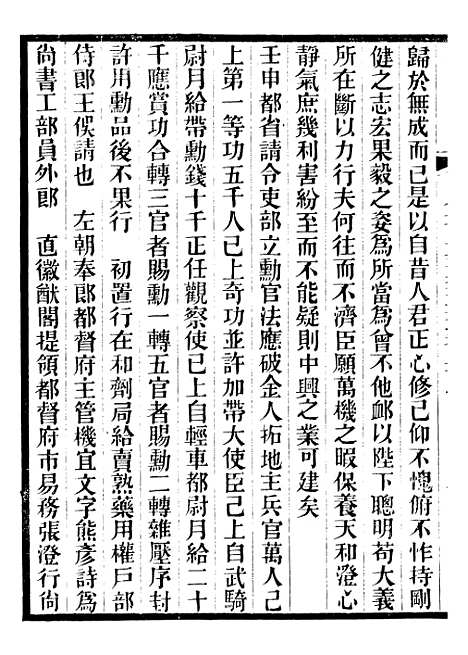 歸於無成而已是以自昔人君正心修己仰不愧俯不怍持剛
健之志宏果毅之姿為所當為曾不他邮以陛下聰明苟大義
所在斷以力行夫何往而不濟臣願萬機之暇保養天和澄心
靜氣庶幾利害紛至而不能疑則中興之業可建矣
壬申都省請令吏部立勳官法應破金人拓地主兵官萬人已
上第一等功五千人已上奇功並許加帶大使臣已上自武騎
尉月給帶勳錢十千正任觀察使已上自輕車都尉月給二十
千應賞功合轉三官者賜勳一轉五官者賜勳二轉雜壓序封
許用勳品後不果行　初置行在和劑局給賣熟藥用權戸部
侍郎王俁請也　左朝奉郎都督府主管機宜文字熊彥詩為
尚書工部員外郎　直徽猷閣提領都督府市易務張澄行尙